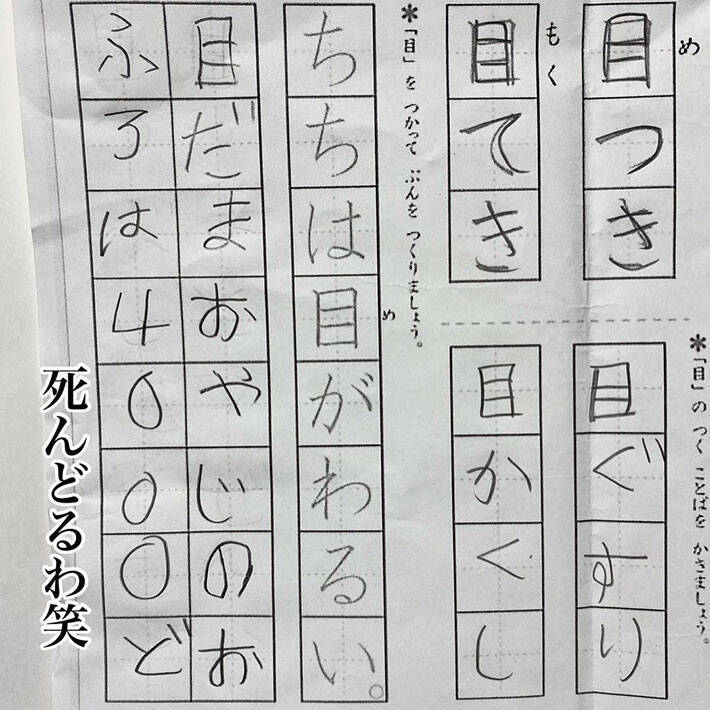 め
目つき
もく
目てき
＊「目」の つく ことばを かきましょう。
目ぐすり
目かくし
＊「目」を つかって ぶんを つくりましょう。
め
ちちは目がわるい。
目だまおやじのお
ふろは4000ど
死んどるわ笑